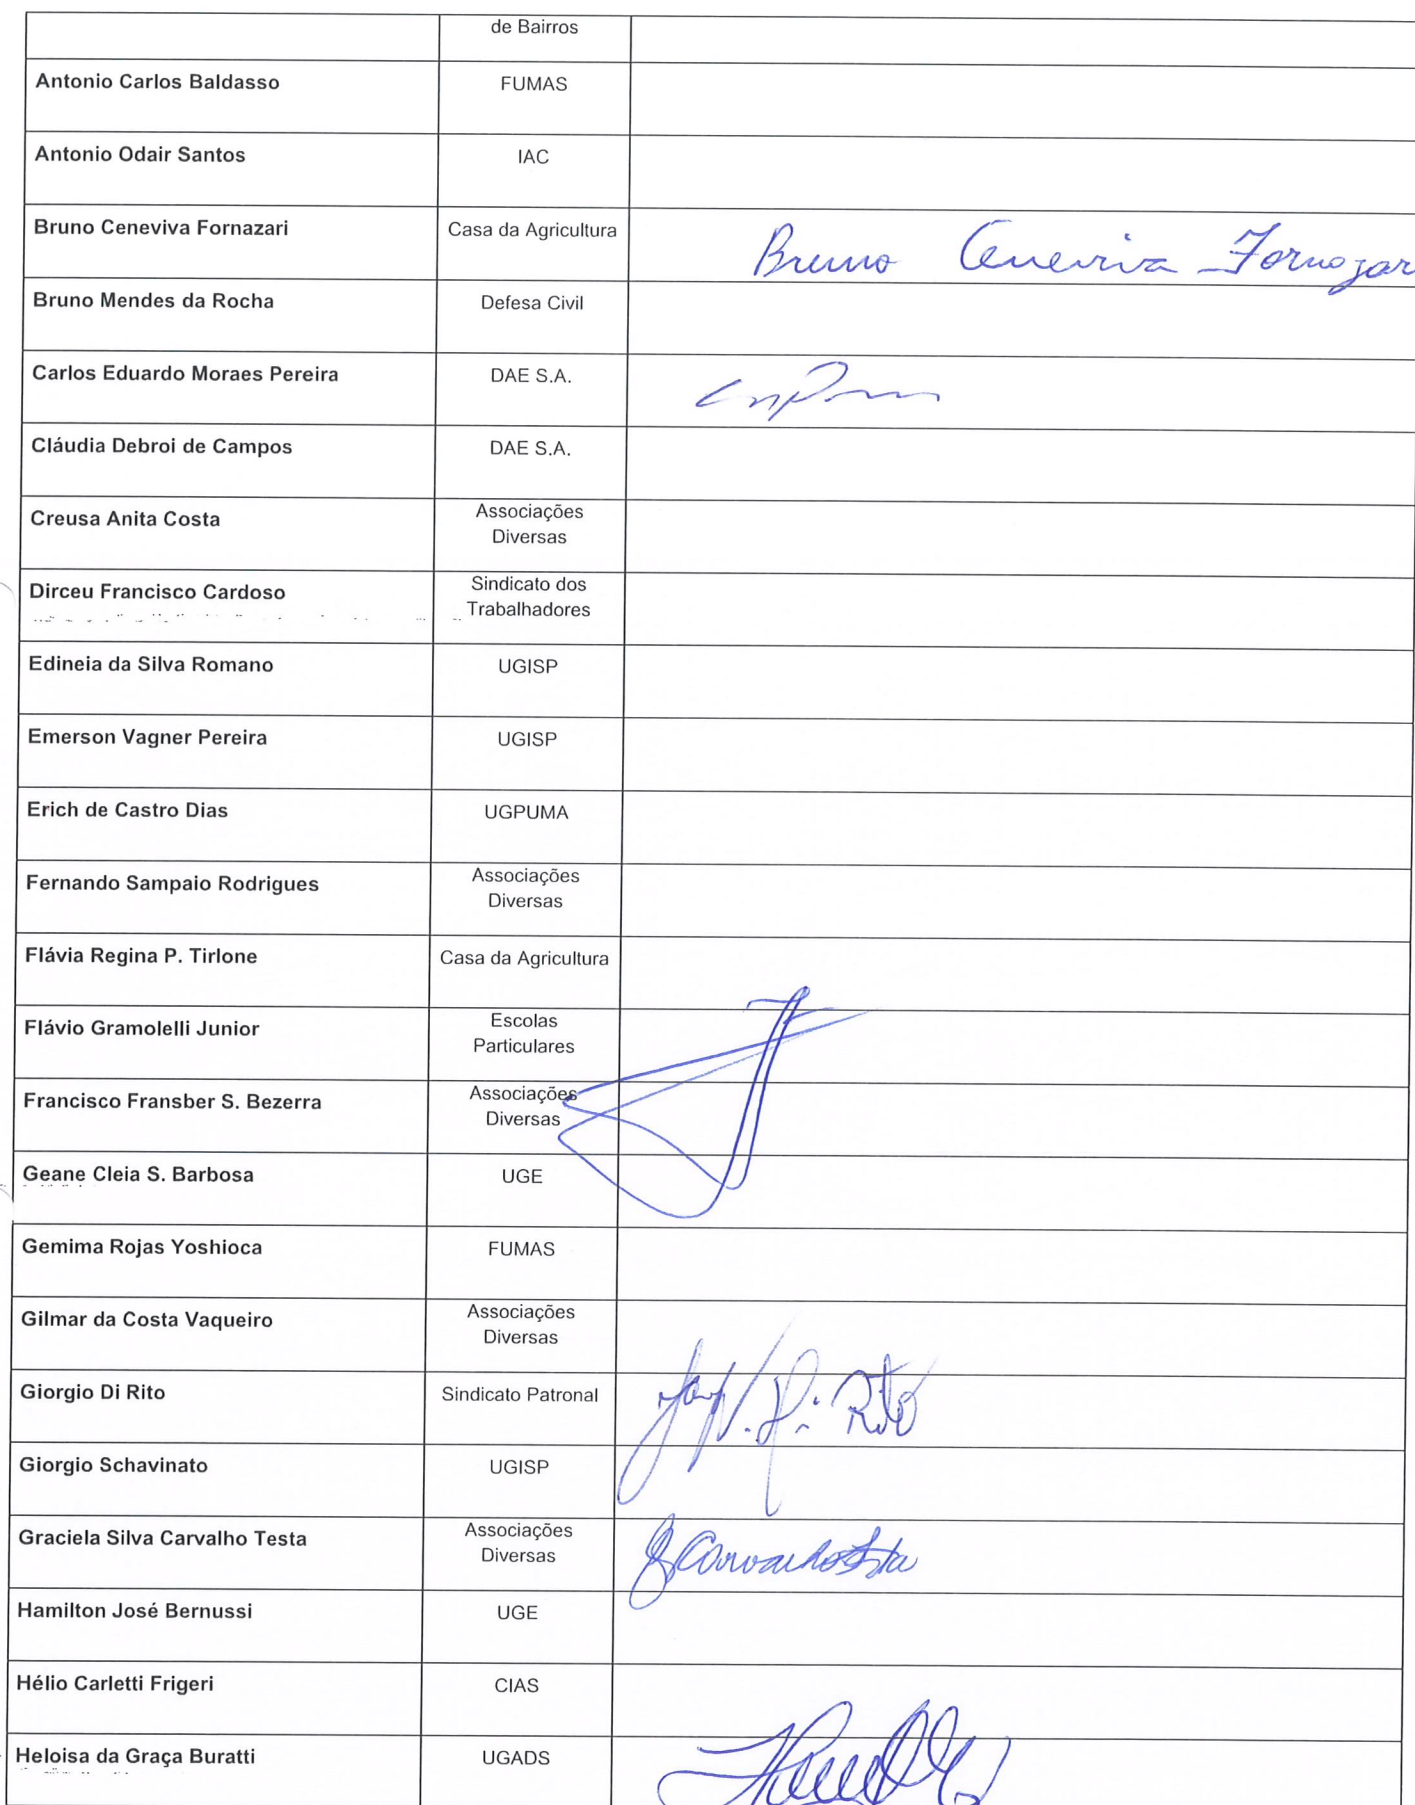 de Bairros
Antonio Carlos Baldasso FUMAS
Antonio Odair Santos IAC
Bruno Ceneviva Fornazari Casa da Agricultura Bruno Ceneviva Fornazar
Bruno Mendes da Rocha Defesa Civil
Carlos Eduardo Moraes Pereira DAE S.A.
Cláudia Debroi de Campos DAE S.A.
Creusa Anita Costa Associações
Diversas
Dirceu Francisco Cardoso Sindicato dos
Trabalhadores
Edineia da Silva Romano UGISP
Emerson Vagner Pereira UGISP
Erich de Castro Dias UGPUMA
Fernando Sampaio Rodrigues Associações
Diversas
Flávia Regina P. Tirlone Casa da Agricultura
Flávio Gramolelli Junior Escolas
Particulares
Francisco Fransber S. Bezerra Associações
Diversas
Geane Cleia S. Barbosa UGE
Gemima Rojas Yoshioca FUMAS
Gilmar da Costa Vaqueiro Associações
Diversas
Giorgio Di Rito Sindicato Patronal Di Rito
Giorgio Schavinato UGISP
Graciela Silva Carvalho Testa Associações
Diversas
Hamilton José Bernussi UGE
Hélio Carletti Frigeri CIAS
Heloisa da Graça Buratti UGADS